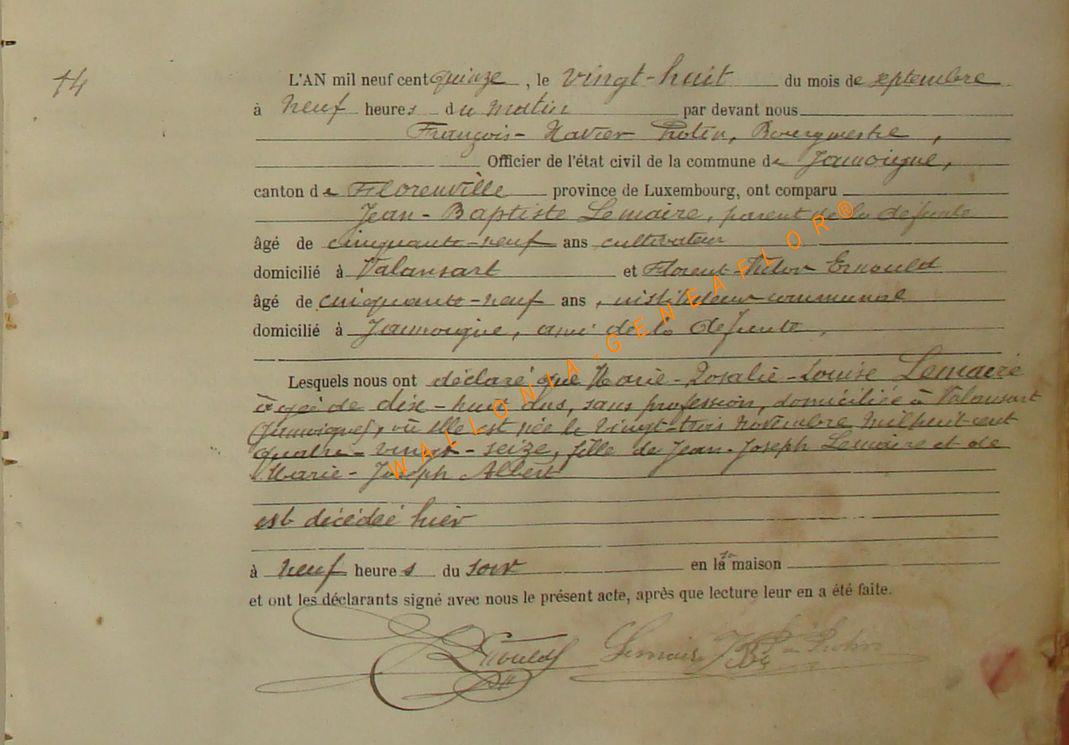 14
L'AN mil neuf cent quinze, le vingt-huit du mois de septembre
à neuf heures du matin par devant nous
François-Xavier Bourgmestre,
Officier de l'état civil de la commune de Jamoigne,
canton de Florenville province de Luxembourg, ont comparu
Jean-Baptiste Lemaire, parent de la défunte
âgé de cinquante-neuf ans cultivateur
domicilié à Valansart et Florent-Victor Ernould
âgé de cinquante-neuf ans, instituteur communal
domicilié à Jamoigne, ami de la défunte,
Lesquels nous ont déclaré que Marie-Rosalie-Louise Lemaire
âgée de dix-huit ans, sans profession, domiciliée à Valansart
(Jamoigne), où elle est née le vingt-trois novembre mil huit cent
quatre-vingt-seize, fille de Jean-Joseph Lemaire et de
Marie-Joseph Albert
est décédée hier
à neuf heures du soir en sa maison
et ont les déclarants signé avec nous le présent acte, après que lecture leur en a été faite.
Ernould Lemaire JB
WALLONIA-GENEAFLOR®